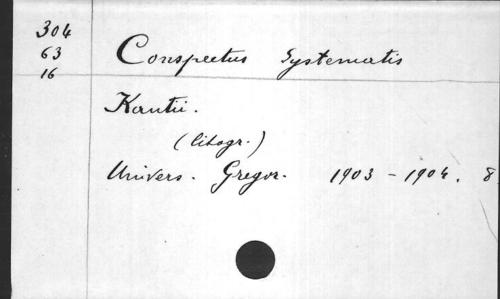 304
63
16
Conspectus Systematis
Kantii.
(litogr.)
Univers. Gregor. 1903 - 1904. 8